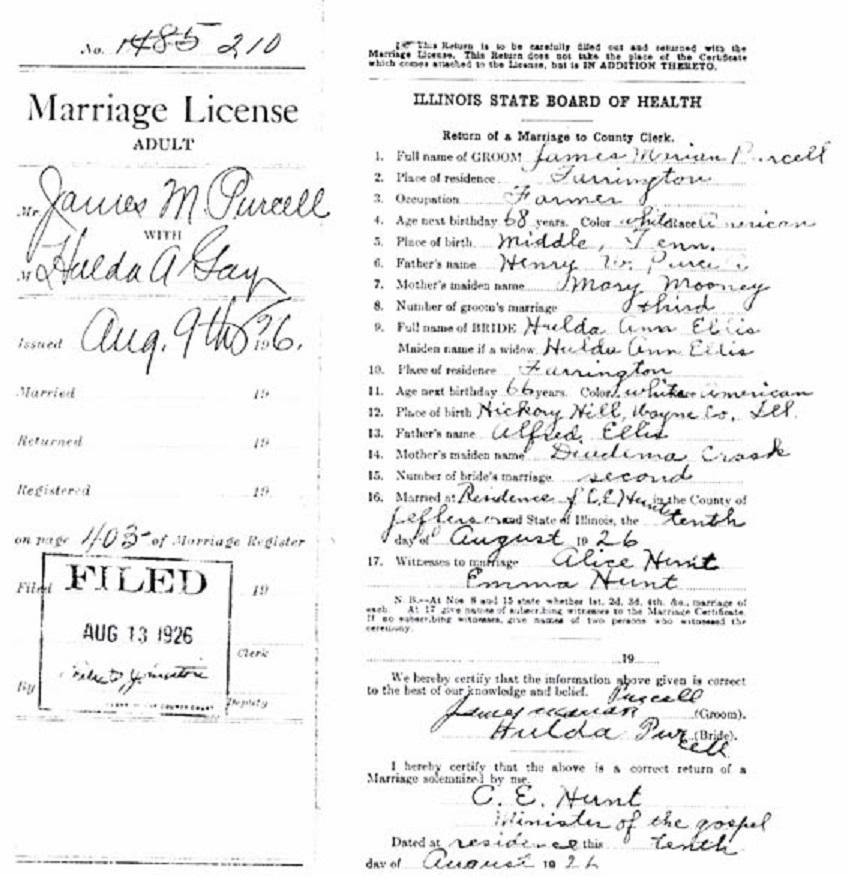 No. 1485 210
Marriage License
ADULT
Mr. James M. Purcell
WITH
M Hulda A Gay
Issued Aug. 9th 1926.
Married 19
Returned 19
Registered 19
on page 403 of Marriage Register
Filed 19
FILED
AUG 13 1926
Clerk
By Deputy
This Return is to be carefully filled out and returned with the
Marriage License. This Return does not take the place of the Certificate
which comes attached to the License, but is IN ADDITION THERETO.
ILLINOIS STATE BOARD OF HEALTH
Return of a Marriage to County Clerk.
1. Full name of GROOM James Merian Purcell
2. Place of residence Farrington
3. Occupation Farmer
4. Age next birthday 68 years. Color white Race American
5. Place of birth Middle, Tenn.
6. Father's name Henry W. Purcell
7. Mother's maiden name Mary Mooney
8. Number of groom's marriage third
9. Full name of BRIDE Hulda Ann Ellis
Maiden name if a widow Hulda Ann Ellis
10. Place of residence Farrington
11. Age next birthday 66 years. Color white Race American
12. Place of birth Hickory Hill, Wayne Co., Ill.
13. Father's name Alfred Ellis
14. Mother's maiden name Deudima Crask
15. Number of bride's marriage second
16. Married at Residence of C. E. Hunt in the County of
Jefferson and State of Illinois, the tenth
day of August 1926
17. Witnesses to marriage Alice Hunt
Emma Hunt
N. B.—At Nos 8 and 15 state whether 1st, 2d, 3d, 4th, &c., marriage of
each. At 17 give names of subscribing witnesses to the Marriage Certificate.
If no subscribing witnesses, give names of two persons who witnessed the
ceremony.
19
We hereby certify that the information above given is correct
to the best of our knowledge and belief.
James Marian Purcell (Groom).
Hulda Purcell (Bride).
I hereby certify that the above is a correct return of a
Marriage solemnized by me.
C. E. Hunt
Minister of the gospel
Dated at residence this tenth
day of August 1926